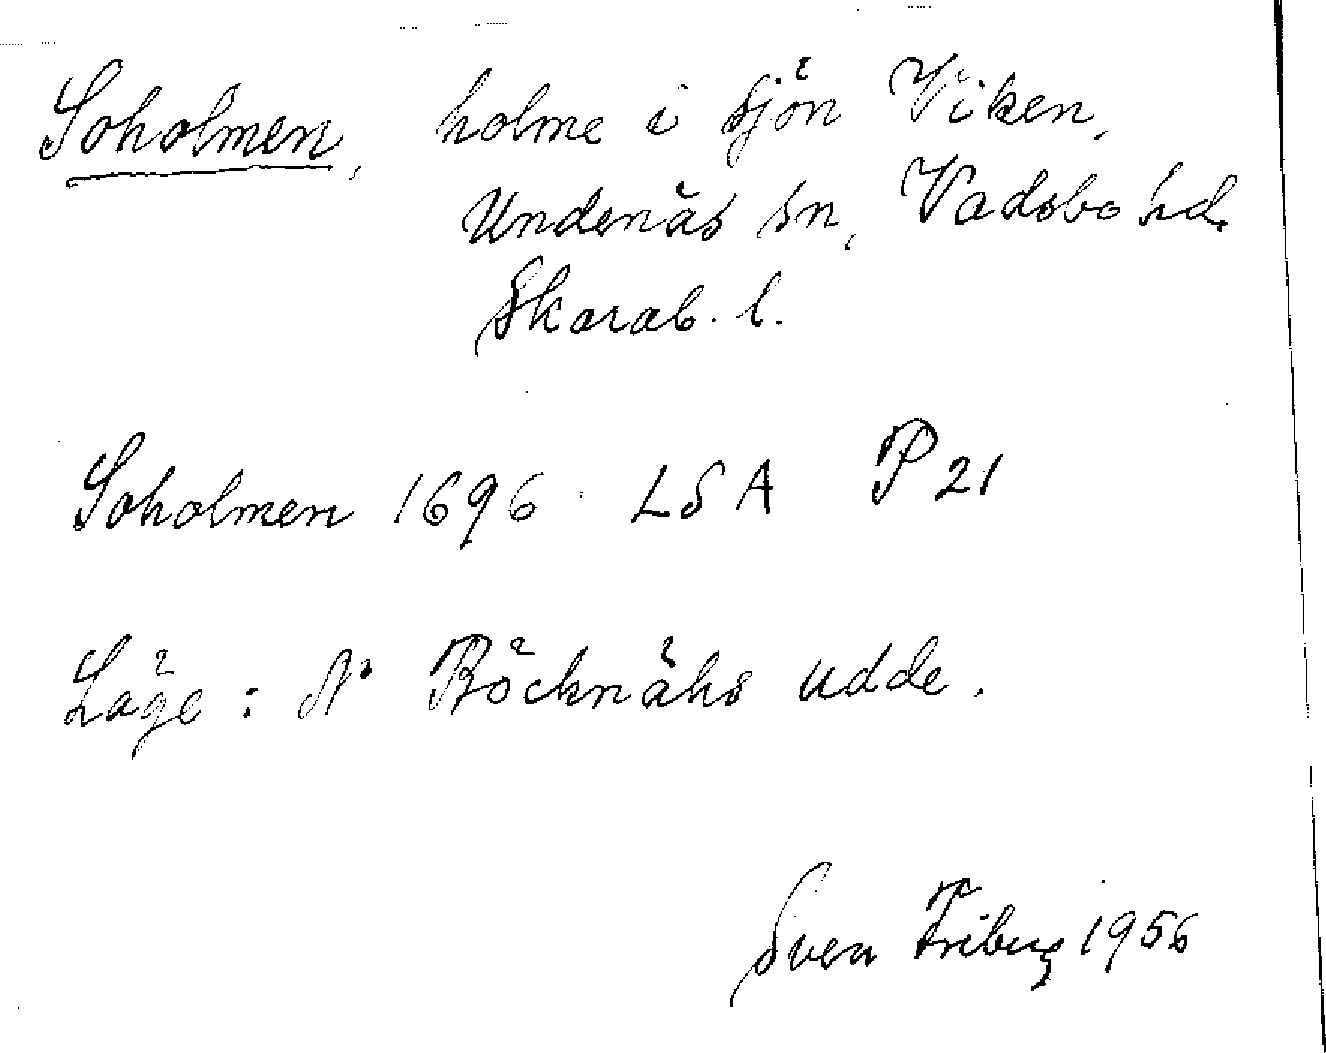 Soholmen, holme i sjön Viken,
Undenäs sn, Vadsbo hd.
Skarab. l.
Soholmen 1696 LSA P 21
Läge: N Böcknähs udde.
Sven Friberg 1956